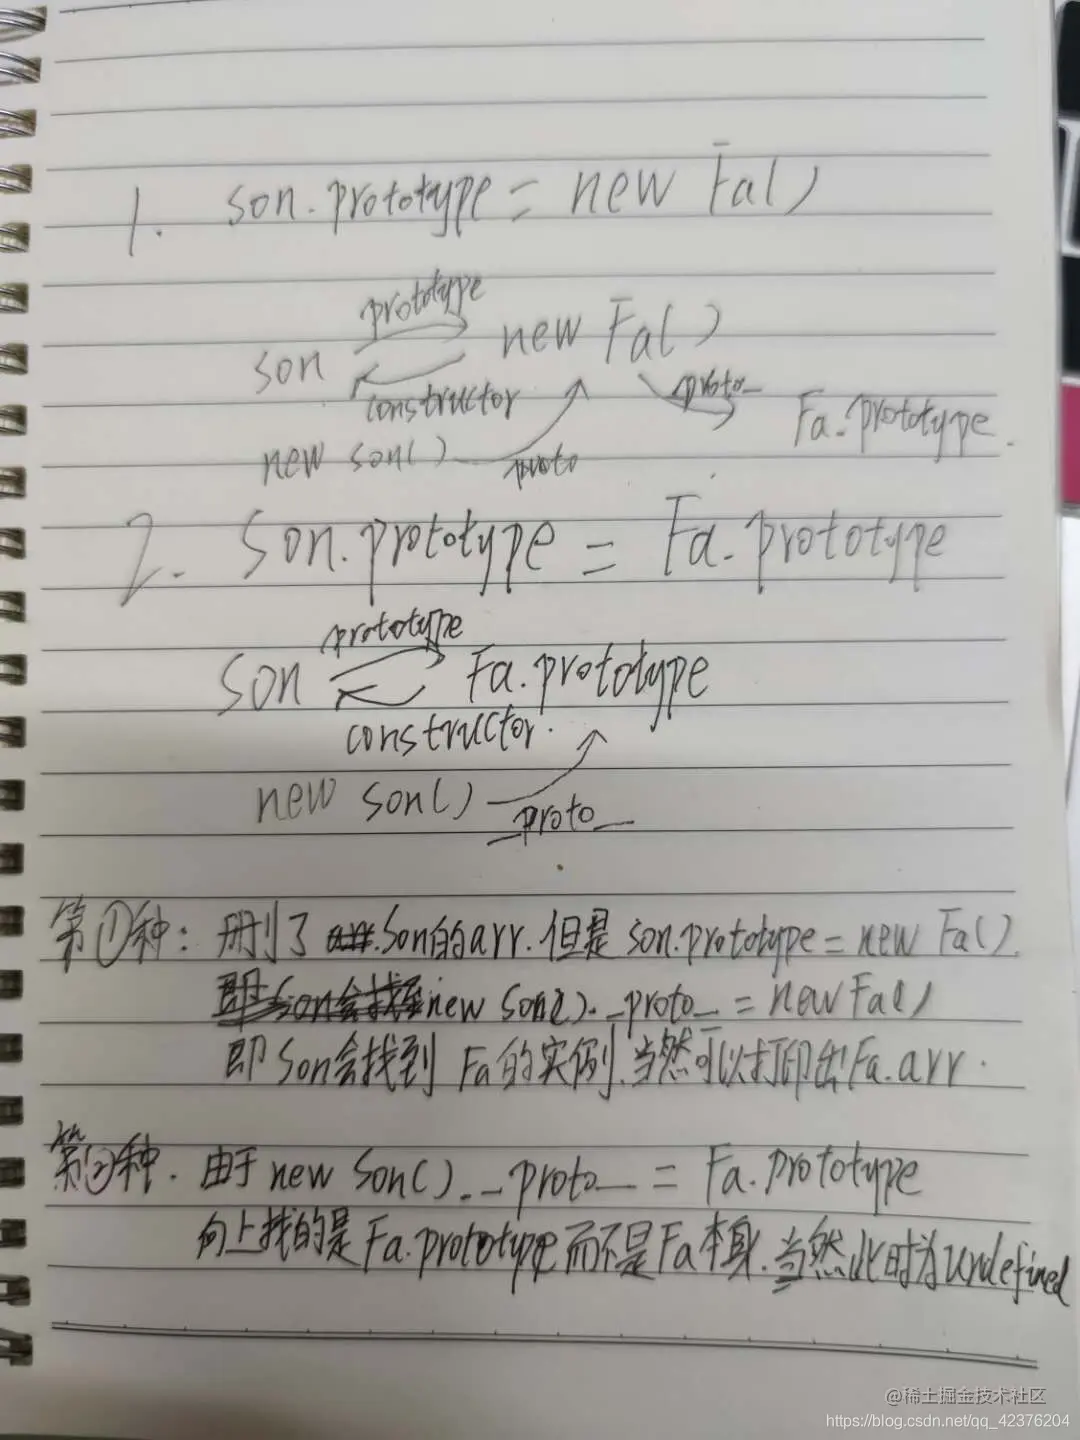 1. son.prototype = new Fa()
prototype
son new Fa()
constructor
__proto__
Fa.prototype.
new son()
proto
2. Son.prototype = Fa.prototype
prototype
Son Fa.prototype
constructor.
new son()
__proto__
第①种: 删了 Son的arr.但是 son.prototype = new Fa().
new Son().__proto__ = new Fa()
即 Son会找到 Fa的实例,当然可以打印出Fa.arr.
第②种. 由于 new Son().__proto__ = Fa.prototype
向上找的是Fa.prototype而不是Fa本身.当然此时为undefined
@稀土掘金技术社区
https://blog.csdn.net/qq_42376204